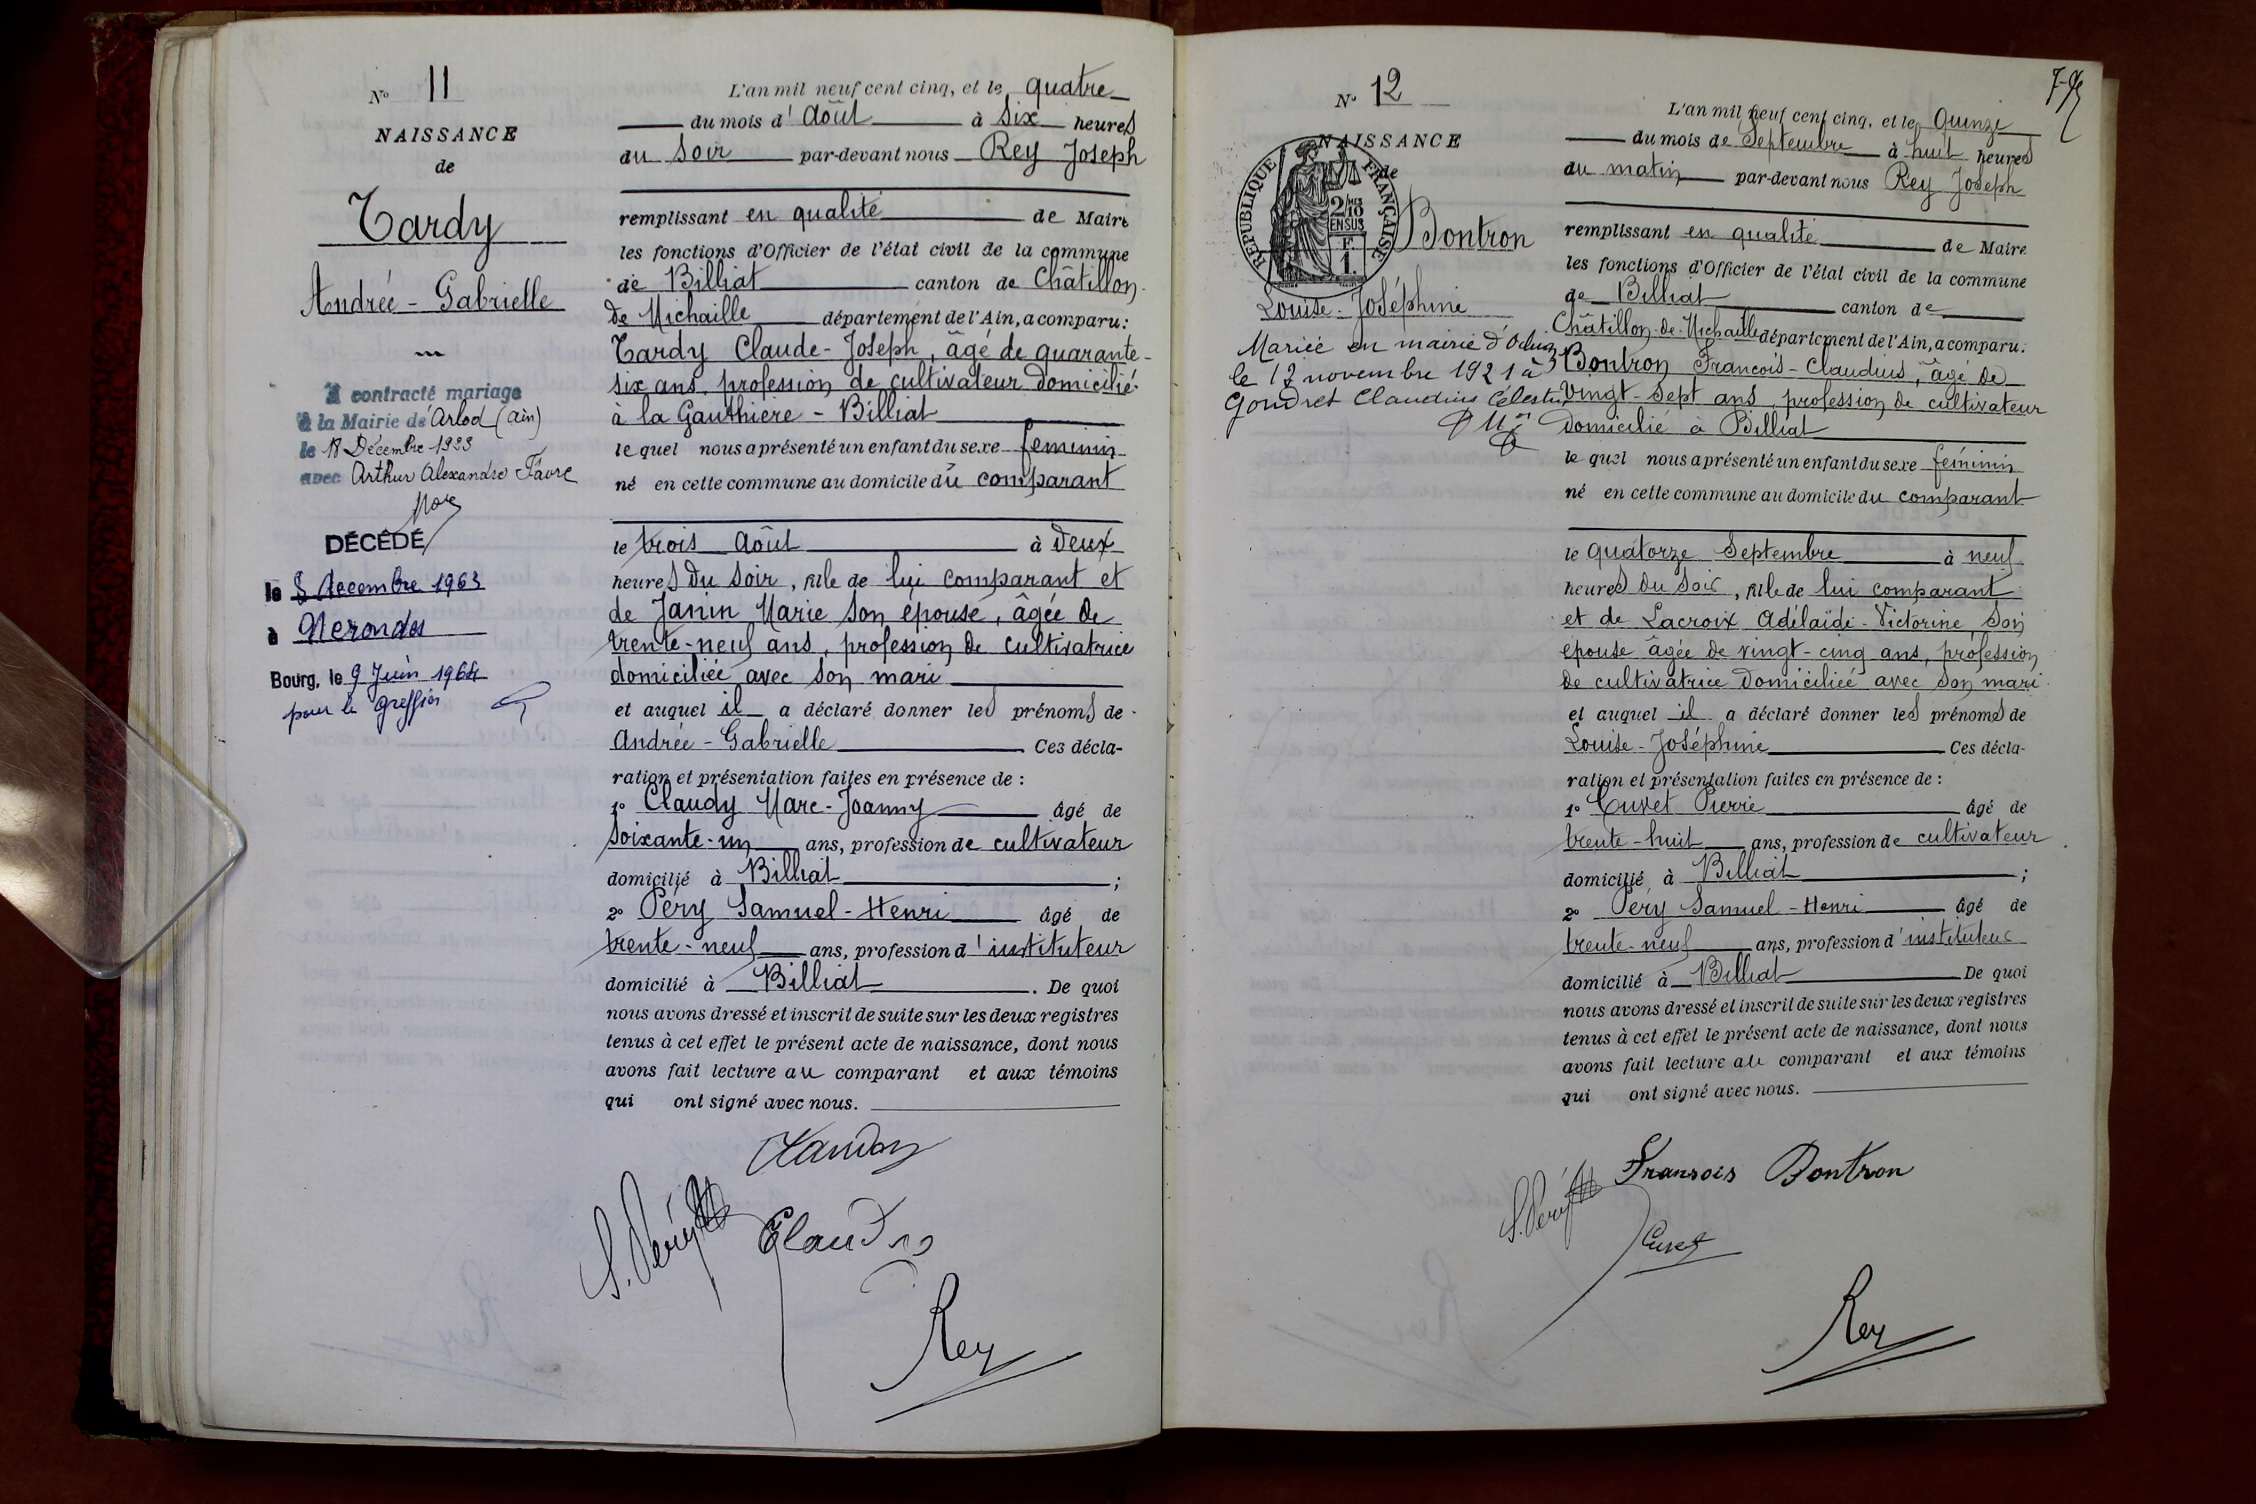 N° 11
NAISSANCE
de
Tardy
Andrée-Gabrielle
A contracté mariage
à la Mairie de Arlod (ain)
le 18 Décembre 1923
avec Arthur Alexandre Favre
DÉCÉDÉ
le 8 decembre 1963
à
Bourg, le 9 Juin 1964
pour le greffier
L'an mil neuf cent cinq, et le quatre
du mois d'Août à six heures
du soir par-devant nous Rey Joseph
remplissant en qualité de Maire
les fonctions d'Officier de l'état civil de la commune
de Billiat canton de Châtillon
de Michaille département de l'Ain, a comparu:
Tardy Claude-Joseph, âgé de quarante-
six ans, profession de cultivateur domicilié
à la Gauthière - Billiat
le quel nous a présenté un enfant du sexe féminin
né en cette commune au domicile du comparant
le trois Août à deux
heures du soir, fille de lui comparant et
de Janin Marie son épouse, âgée de
trente-neuf ans, profession de cultivatrice
domiciliée avec son mari
et auquel il a déclaré donner les prénoms de
Andrée-Gabrielle Ces décla-
ration et présentation faites en présence de :
1° Claudy Marc-Joanny âgé de
soixante-un ans, profession de cultivateur
domicilié à Billiat ;
2° Péry Samuel-Henri âgé de
trente-neuf ans, profession d'instituteur
domicilié à Billiat. De quoi
nous avons dressé et inscrit de suite sur les deux registres
tenus à cet effet le présent acte de naissance, dont nous
avons fait lecture au comparant et aux témoins
qui ont signé avec nous.
S. Péry
Claudy
Rey
N° 12
NAISSANCE
de
RÉPUBLIQUE FRANÇAISE
2/10 MES
EN SUS
F.
1.
Bontron
Louise-Joséphine
Mariée en mairie d'
le 12 novembre 1921 à
Gondret Claudius Célestin
L'an mil neuf cent cinq, et le Quinze
du mois de Septembre à huit heures
du matin par-devant nous Rey Joseph
remplissant en qualité de Maire
les fonctions d'Officier de l'état civil de la commune
de Billiat canton de
Châtillon-de-Michaille département de l'Ain, a comparu.
Bontron François-Claudius, âgé de
vingt-sept ans, profession de cultivateur
domicilié à Billiat
le quel nous a présenté un enfant du sexe féminin
né en cette commune au domicile du comparant
le quatorze Septembre à neuf
heures du soir, fille de lui comparant
et de Lacroix Adélaïde-Victorine, son
épouse âgée de vingt-cinq ans, profession
de cultivatrice domiciliée avec son mari
et auquel il a déclaré donner les prénoms de
Louise-Joséphine Ces décla-
ration et présentation faites en présence de :
1° Cuvet Pierre âgé de
trente-huit ans, profession de cultivateur
domicilié à Billiat ;
2° Péry Samuel-Henri âgé de
trente-neuf ans, profession d'instituteur
domicilié à Billiat De quoi
nous avons dressé et inscrit de suite sur les deux registres
tenus à cet effet le présent acte de naissance, dont nous
avons fait lecture au comparant et aux témoins
qui ont signé avec nous.
Fransois Bontron
S. Péry
Cuvet
Rey